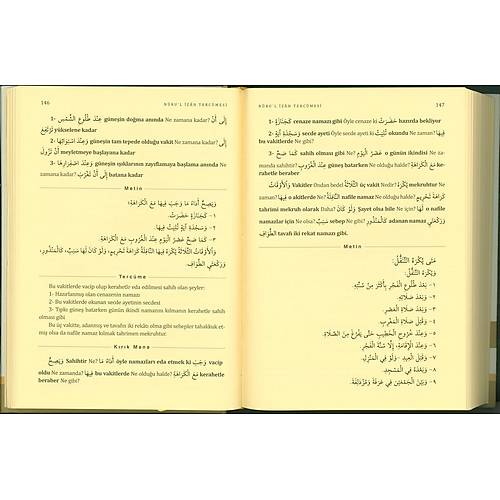 146 NÛRU'L ÎZÂH TERCÜMESİ
1- عِنْدَ طُلُوعِ الشَّمْسِ güneşin doğma anında Ne zamana kadar? إِلَى أَنْ
تَرْتَفِعَ yükselene kadar
2- عِنْدَ اسْتِوَائِهَا güneşin tam tepede olduğu vakit Ne zamana kadar?
إِلَى أَنْ تَزُولَ meyletmeye başlayana kadar
3- عِنْدَ اصْفِرَارِهَا güneşin ışıklarının zayıflamaya başlama anında Ne
zamana kadar? إِلَى أَنْ تَغْرُبَ batana kadar
Metin
وَيَصِحُّ أَدَاءُ مَا وَجَبَ فِيهَا مَعَ الْكَرَاهَةِ:
١- كَجَنَازَةٍ حَضَرَتْ.
٢- وَسَجْدَةِ آيَةٍ تُلِيَتْ فِيهَا.
٣- كَمَا صَحَّ عَصْرُ الْيَوْمِ عِنْدَ الْغُرُوبِ مَعَ الْكَرَاهَةِ.
وَالْأَوْقَاتُ الثَّلَاثَةُ يُكْرَهُ فِيهَا النَّافِلَةُ كَرَاهَةَ تَحْرِيمٍ، وَلَوْ كَانَ لَهَا سَبَبٌ، كَالْمَنْذُورِ،
وَرَكْعَتَيِ الطَّوَافِ.
Tercüme
Bu vakitlerde vacip olup kerahetle eda edilmesi sahih olan şeyler:
1- Hazırlanmış olan cenazenin namazı
2- Bu vakitlerde okunan secde ayetinin secdesi
3- Tıpkı güneş batarken günün ikindi namazını kılmanın kerahetle sahih
olması gibi
Bu üç vakitte, adanmış ve tavafın iki rekâtı olma gibi sebepler tahakkuk et-
miş olsa da nafile namaz kılmak tahrimen mekruhtur.
Kırık Mana
وَيَصِحُّ Sahihtir Ne? أَدَاءُ مَا öyle namazları eda etmek ki وَجَبَ vacip
oldu Ne zamanda? فِيهَا bu vakitlerde Ne olduğu halde? مَعَ الْكَرَاهَةِ kerahetle
beraber Ne gibi?
NÛRU'L ÎZÂH TERCÜMESİ 147
1- كَجَنَازَةٍ cenaze namazı gibi Öyle cenaze ki حَضَرَتْ hazırda bekliyor
2- وَسَجْدَةِ آيَةٍ secde ayeti Öyle secde ayeti ki تُلِيَتْ okundu Ne zaman? فِيهَا
bu vakitlerde Ne gibi?
3- كَمَا صَحَّ sahih olması gibi Ne? عَصْرُ الْيَوْمِ o günün ikindisi Ne za-
manda sahihtir? عِنْدَ الْغُرُوبِ güneş batarken Ne olduğu halde? مَعَ الْكَرَاهَةِ ke-
rahetle beraber
وَالْأَوْقَاتُ Vakitler Ondan bedel الثَّلَاثَةُ üç vakit Ne? يُكْرَهُ mekruhtur Ne
zaman? فِيهَا o vakitlerde Ne? النَّافِلَةُ nafile namaz Ne olduğu halde? كَرَاهَةَ تَحْرِيمٍ
tahrimi mekruh olarak وَلَوْ كَانَ Şayet olsa bile Ne için? لَهَا o nafile
namazlar için Ne olsa? سَبَبٌ sebep Ne gibi? كَالْمَنْذُورِ adanan namaz gibi وَرَكْعَتَيِ
الطَّوَافِ tavafın iki rekat namazı gibi
Metin
مَتَى يُكْرَهُ التَّنَفُّلُ:
وَيُكْرَهُ التَّنَفُّلُ:
١- بَعْدَ طُلُوعِ الْفَجْرِ بِأَكْثَرَ مِنْ سُنَّتِهِ.
٢- وَبَعْدَ صَلَاتِهِ.
٣- وَبَعْدَ صَلَاةِ الْعَصْرِ.
٤- وَقَبْلَ صَلَاةِ الْمَغْرِبِ.
٥- وَعِنْدَ خُرُوجِ الْخَطِيبِ حَتَّى يَفْرُغَ مِنَ الصَّلَاةِ.
٦- وَعِنْدَ الْإِقَامَةِ، إِلَّا سُنَّةَ الْفَجْرِ.
٧- وَقَبْلَ الْعِيدِ وَلَوْ فِي الْمَنْزِلِ.
٨- وَبَعْدَهُ فِي الْمَسْجِدِ.
٩- وَبَيْنَ الْجَمْعَيْنِ فِي عَرَفَةَ وَمُزْدَلِفَةَ.